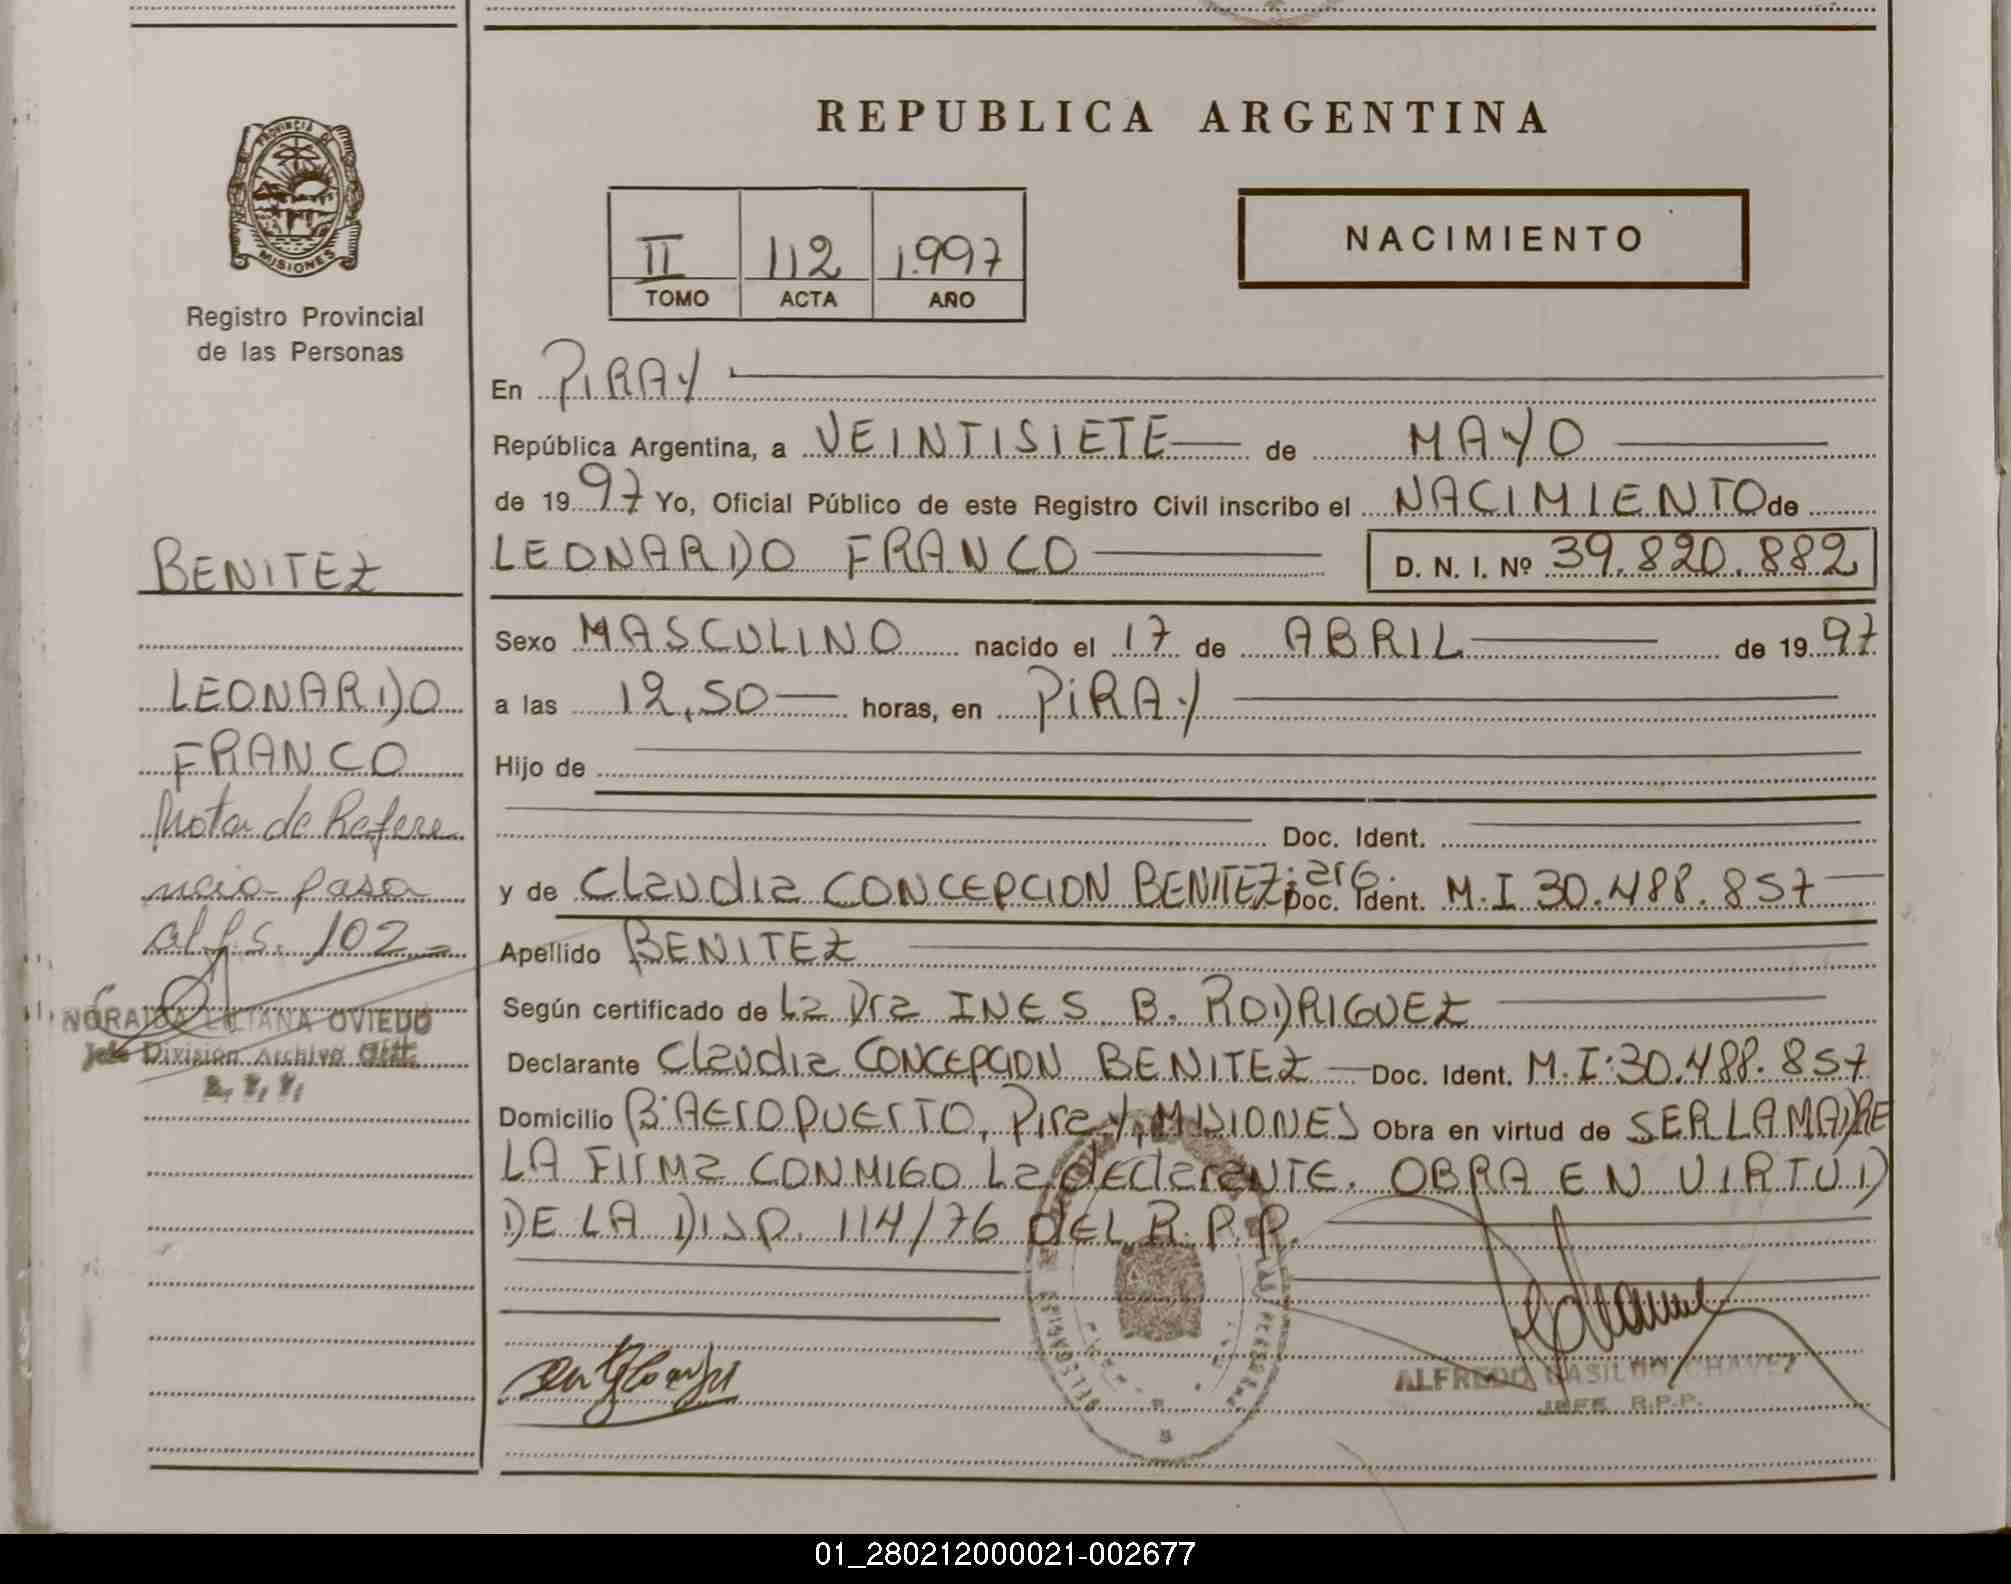 REPUBLICA ARGENTINA
PROVINCIA DE
MISIONES
Registro Provincial
de las Personas
II 112 1.997
TOMO ACTA AÑO
NACIMIENTO
En PIRAY
República Argentina, a VEINTISIETE de MAYO
de 1997 Yo, Oficial Público de este Registro Civil inscribo el NACIMIENTO de
LEONARDO FRANCO D. N. I. Nº 39.820.882
Sexo MASCULINO nacido el 17 de ABRIL de 1997
a las 12,50 horas, en PIRAY
Hijo de
Doc. Ident.
y de Claudia CONCEPCION BENITEZ; arg. Doc. Ident. M.I 30.488.857
Apellido BENITEZ
Según certificado de La Dra INES B. RODRIGUEZ
Declarante Claudia CONCEPCION BENITEZ Doc. Ident. M.I:30.488.857
Domicilio Bº AEROPUERTO, Piray, MISIONES Obra en virtud de SER LA MADRE
LA FIRMA CONMIGO La declarANTE. OBRA EN VIRTUD
DE LA DISP. 114/76 DEL R.P.P.
ALFREDO CASILDO CHAVEZ
JEFE R.P.P.
BENITEZ
LEONARDO
FRANCO
Nota de Refere
ncia pasa
al fs. 102
NORAIDA LILIANA OVIEDO
Jefe División Archivo Gral.
R. P. P.
01_280212000021-002677